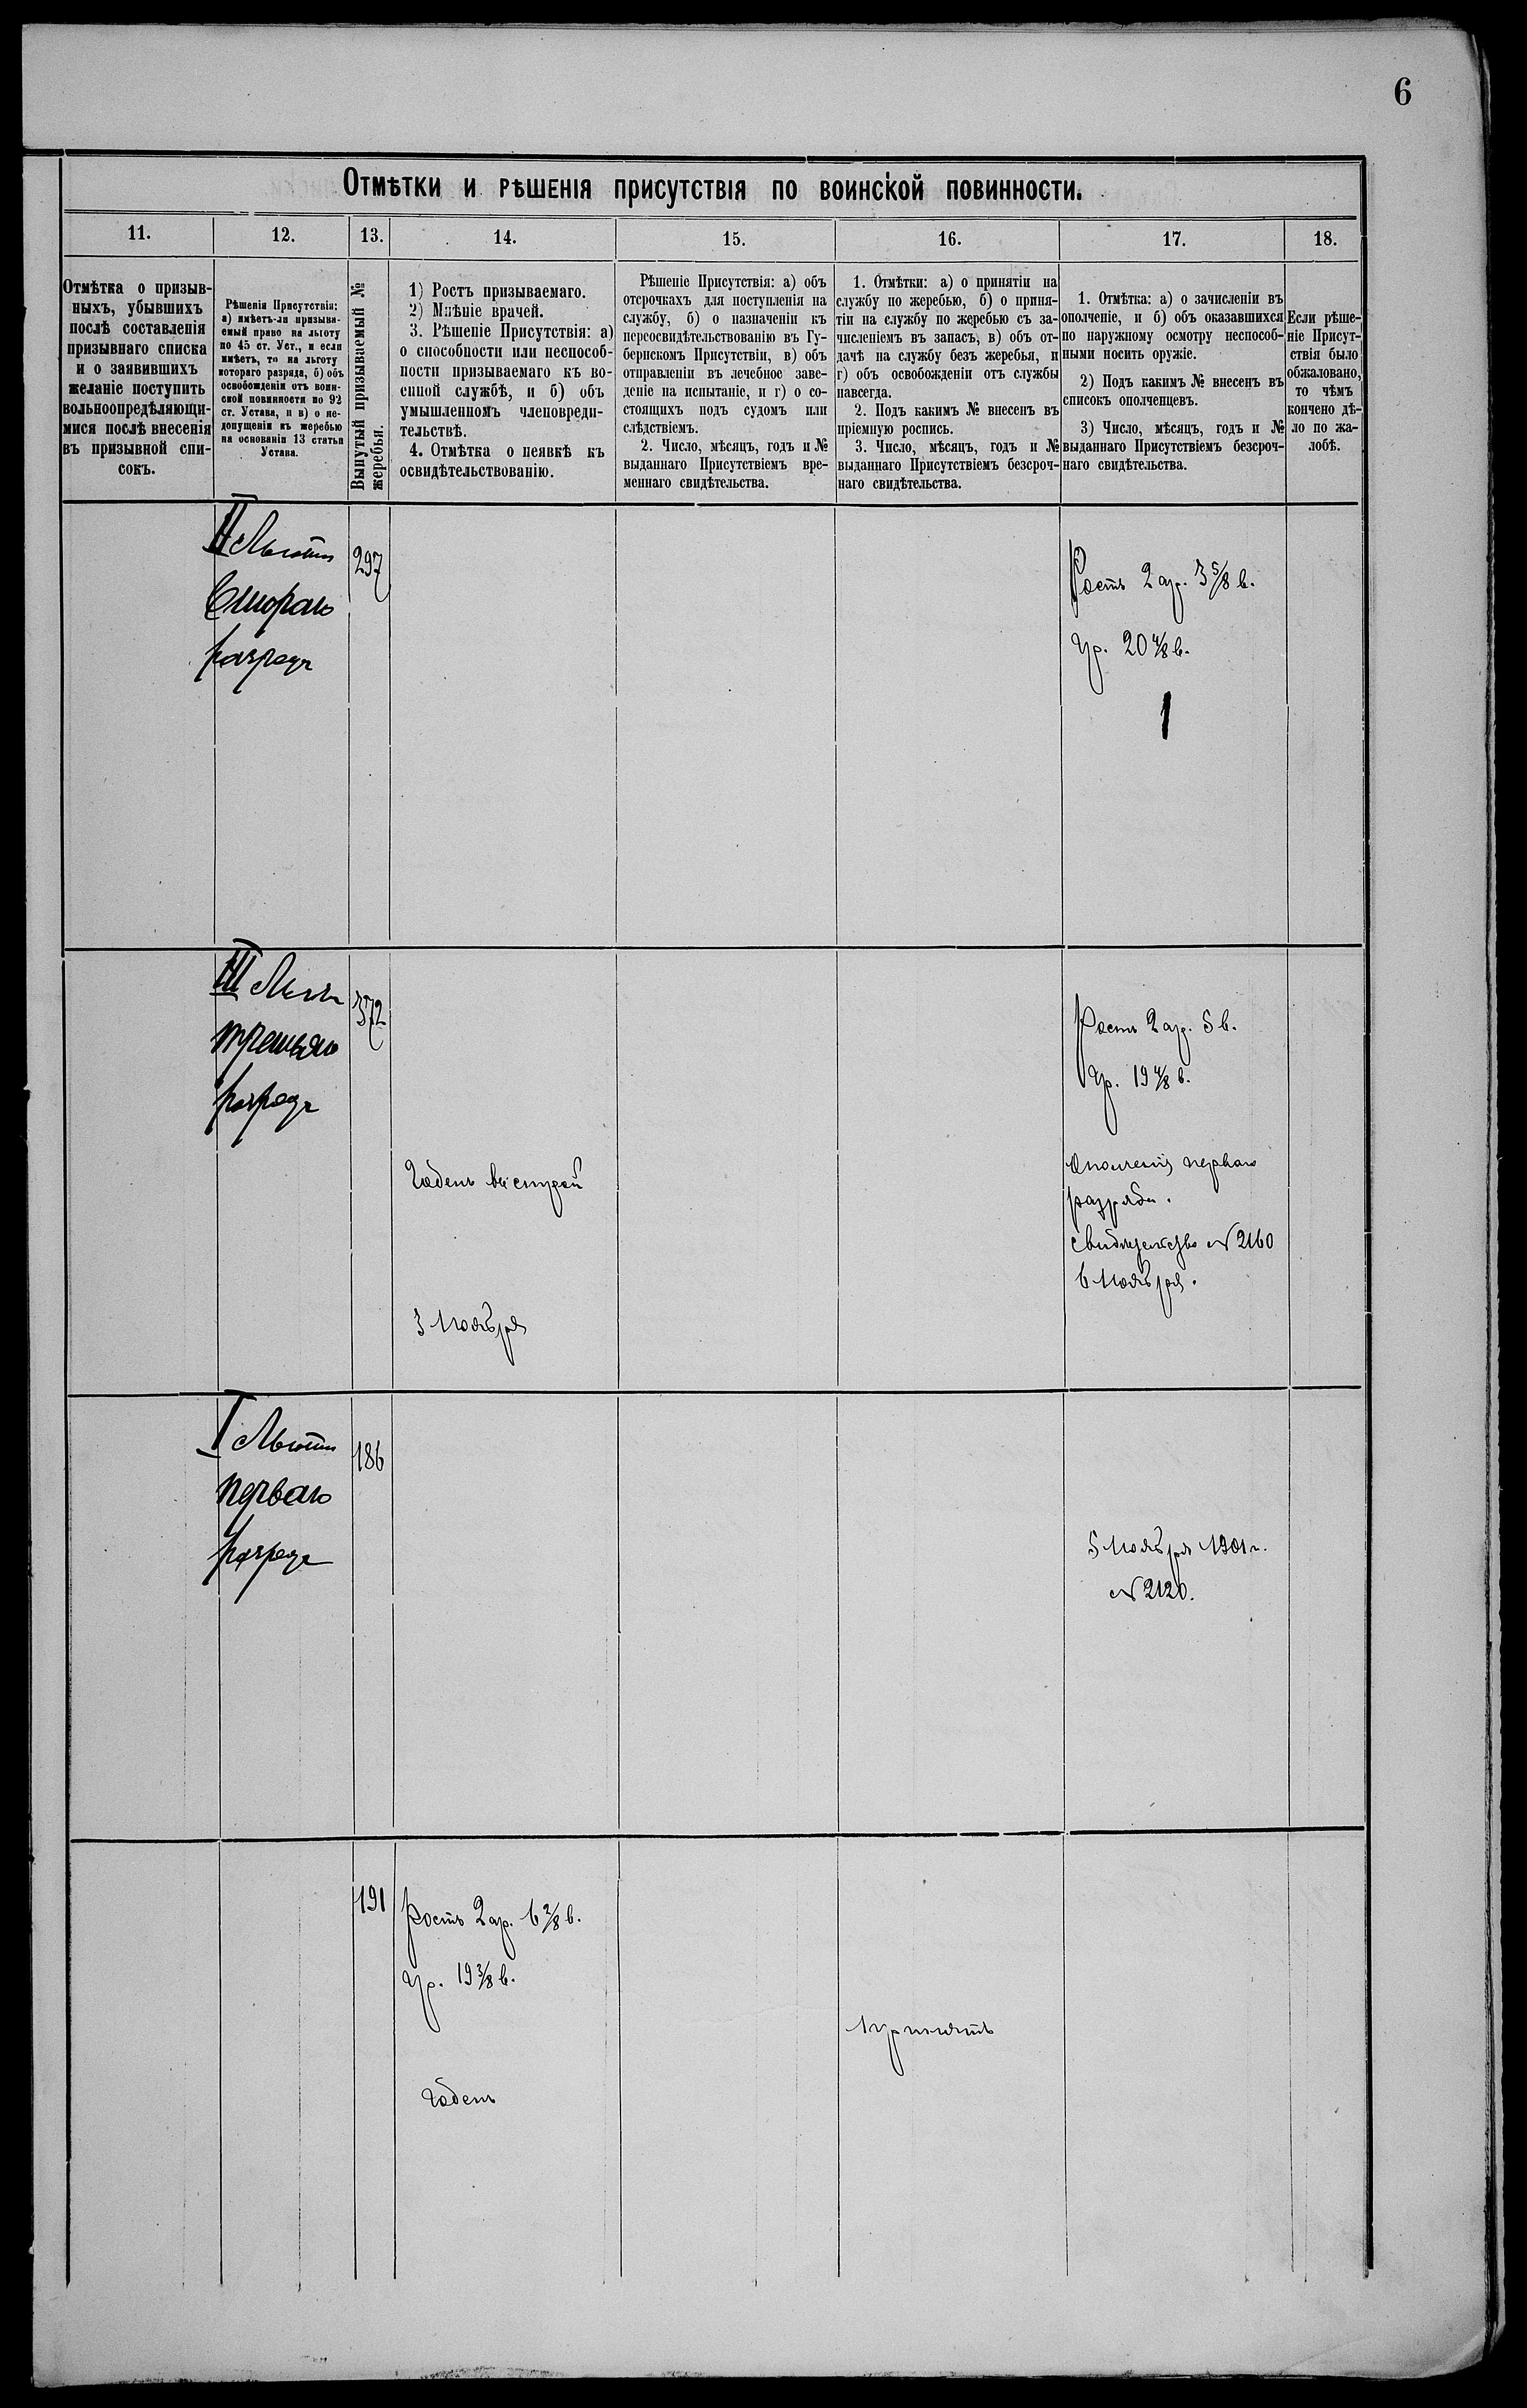 6
Отмѣтки и рѣшенія присутствія по воинской повинности.
11.
12.
13.
14.
15.
16.
17.
18.
Отмѣтка о призыв-
ныхъ, убывшихъ
послѣ составленія
призывнаго списка
и о заявившихъ
желаніе поступить
вольноопредѣляющи-
мися послѣ внесенія
въ призывной спи-
сокъ.
Рѣшенія Присутствія:
а) имѣетъ-ли призыва-
емый право на льготу
по 45 ст. Уст., и если
имѣетъ, то на льготу
котораго разряда, б) объ
освобожденіи отъ воин-
ской повинности по 92
ст. Устава, и в) о не-
допущеніи къ жеребью
на основаніи 13 статьи
Устава.
Вынутый призываемый №
жеребья.
1) Ростъ призываемаго.
2) Мнѣніе врачей.
3. Рѣшеніе Присутствія: а)
о способности или неспособ-
ности призываемаго къ во-
енной службѣ, и б) объ
умышленномъ членовреди-
тельствѣ.
4. Отмѣтка о неявкѣ къ
освидѣтельствованію.
Рѣшеніе Присутствія: а) объ
отсрочкахъ для поступленія на
службу, б) о назначеніи къ
переосвидѣтельствованію въ Гу-
бернскомъ Присутствіи, в) объ
отправленіи въ лечебное заве-
деніе на испытаніе, и г) о со-
стоящихъ подъ судомъ или
слѣдствіемъ.
2. Число, мѣсяцъ, годъ и №
выданнаго Присутствіемъ вре-
меннаго свидѣтельства.
1. Отмѣтки: а) о принятіи на
службу по жеребью, б) о приня-
тіи на службу по жеребью съ за-
численіемъ въ запасъ, в) объ от-
дачѣ на службу безъ жеребья, и
г) объ освобожденіи отъ службы
навсегда.
2. Подъ какимъ № внесенъ въ
пріемную роспись.
3. Число, мѣсяцъ, годъ и №
выданнаго Присутствіемъ безсроч-
наго свидѣтельства.
1. Отмѣтка: а) о зачисленіи въ
ополченіе, и б) объ оказавшихся
по наружному осмотру неспособ-
ными носить оружіе.
2) Подъ какимъ № внесенъ въ
списокъ ополченцевъ.
3) Число, мѣсяцъ, годъ и №
выданнаго Присутствіемъ безсроч-
наго свидѣтельства.
Если рѣше-
ніе Присут-
ствія было
обжаловано,
то чѣмъ
кончено дѣ-
ло по жа-
лобѣ.
II Льготы
Втораго
разряда
297
Ростъ 2 ар. 3 5/8 в.
Гр. 20 4/8 в.
III Льготы
третьяго
разряда
372
Годенъ въ строй
3 Ноября
Ростъ 2 ар. 5 в.
Гр. 19 4/8 в.
Ополченіе перваго
разряда.
Свидѣтельство № 2160
6 Ноября.
I Льготы
перваго
разряда
186
5 Ноября 1901 г.
№ 2120.
191
Ростъ 2 ар. 6 2/8 в.
Гр. 19 3/8 в.
Годенъ
Принятъ